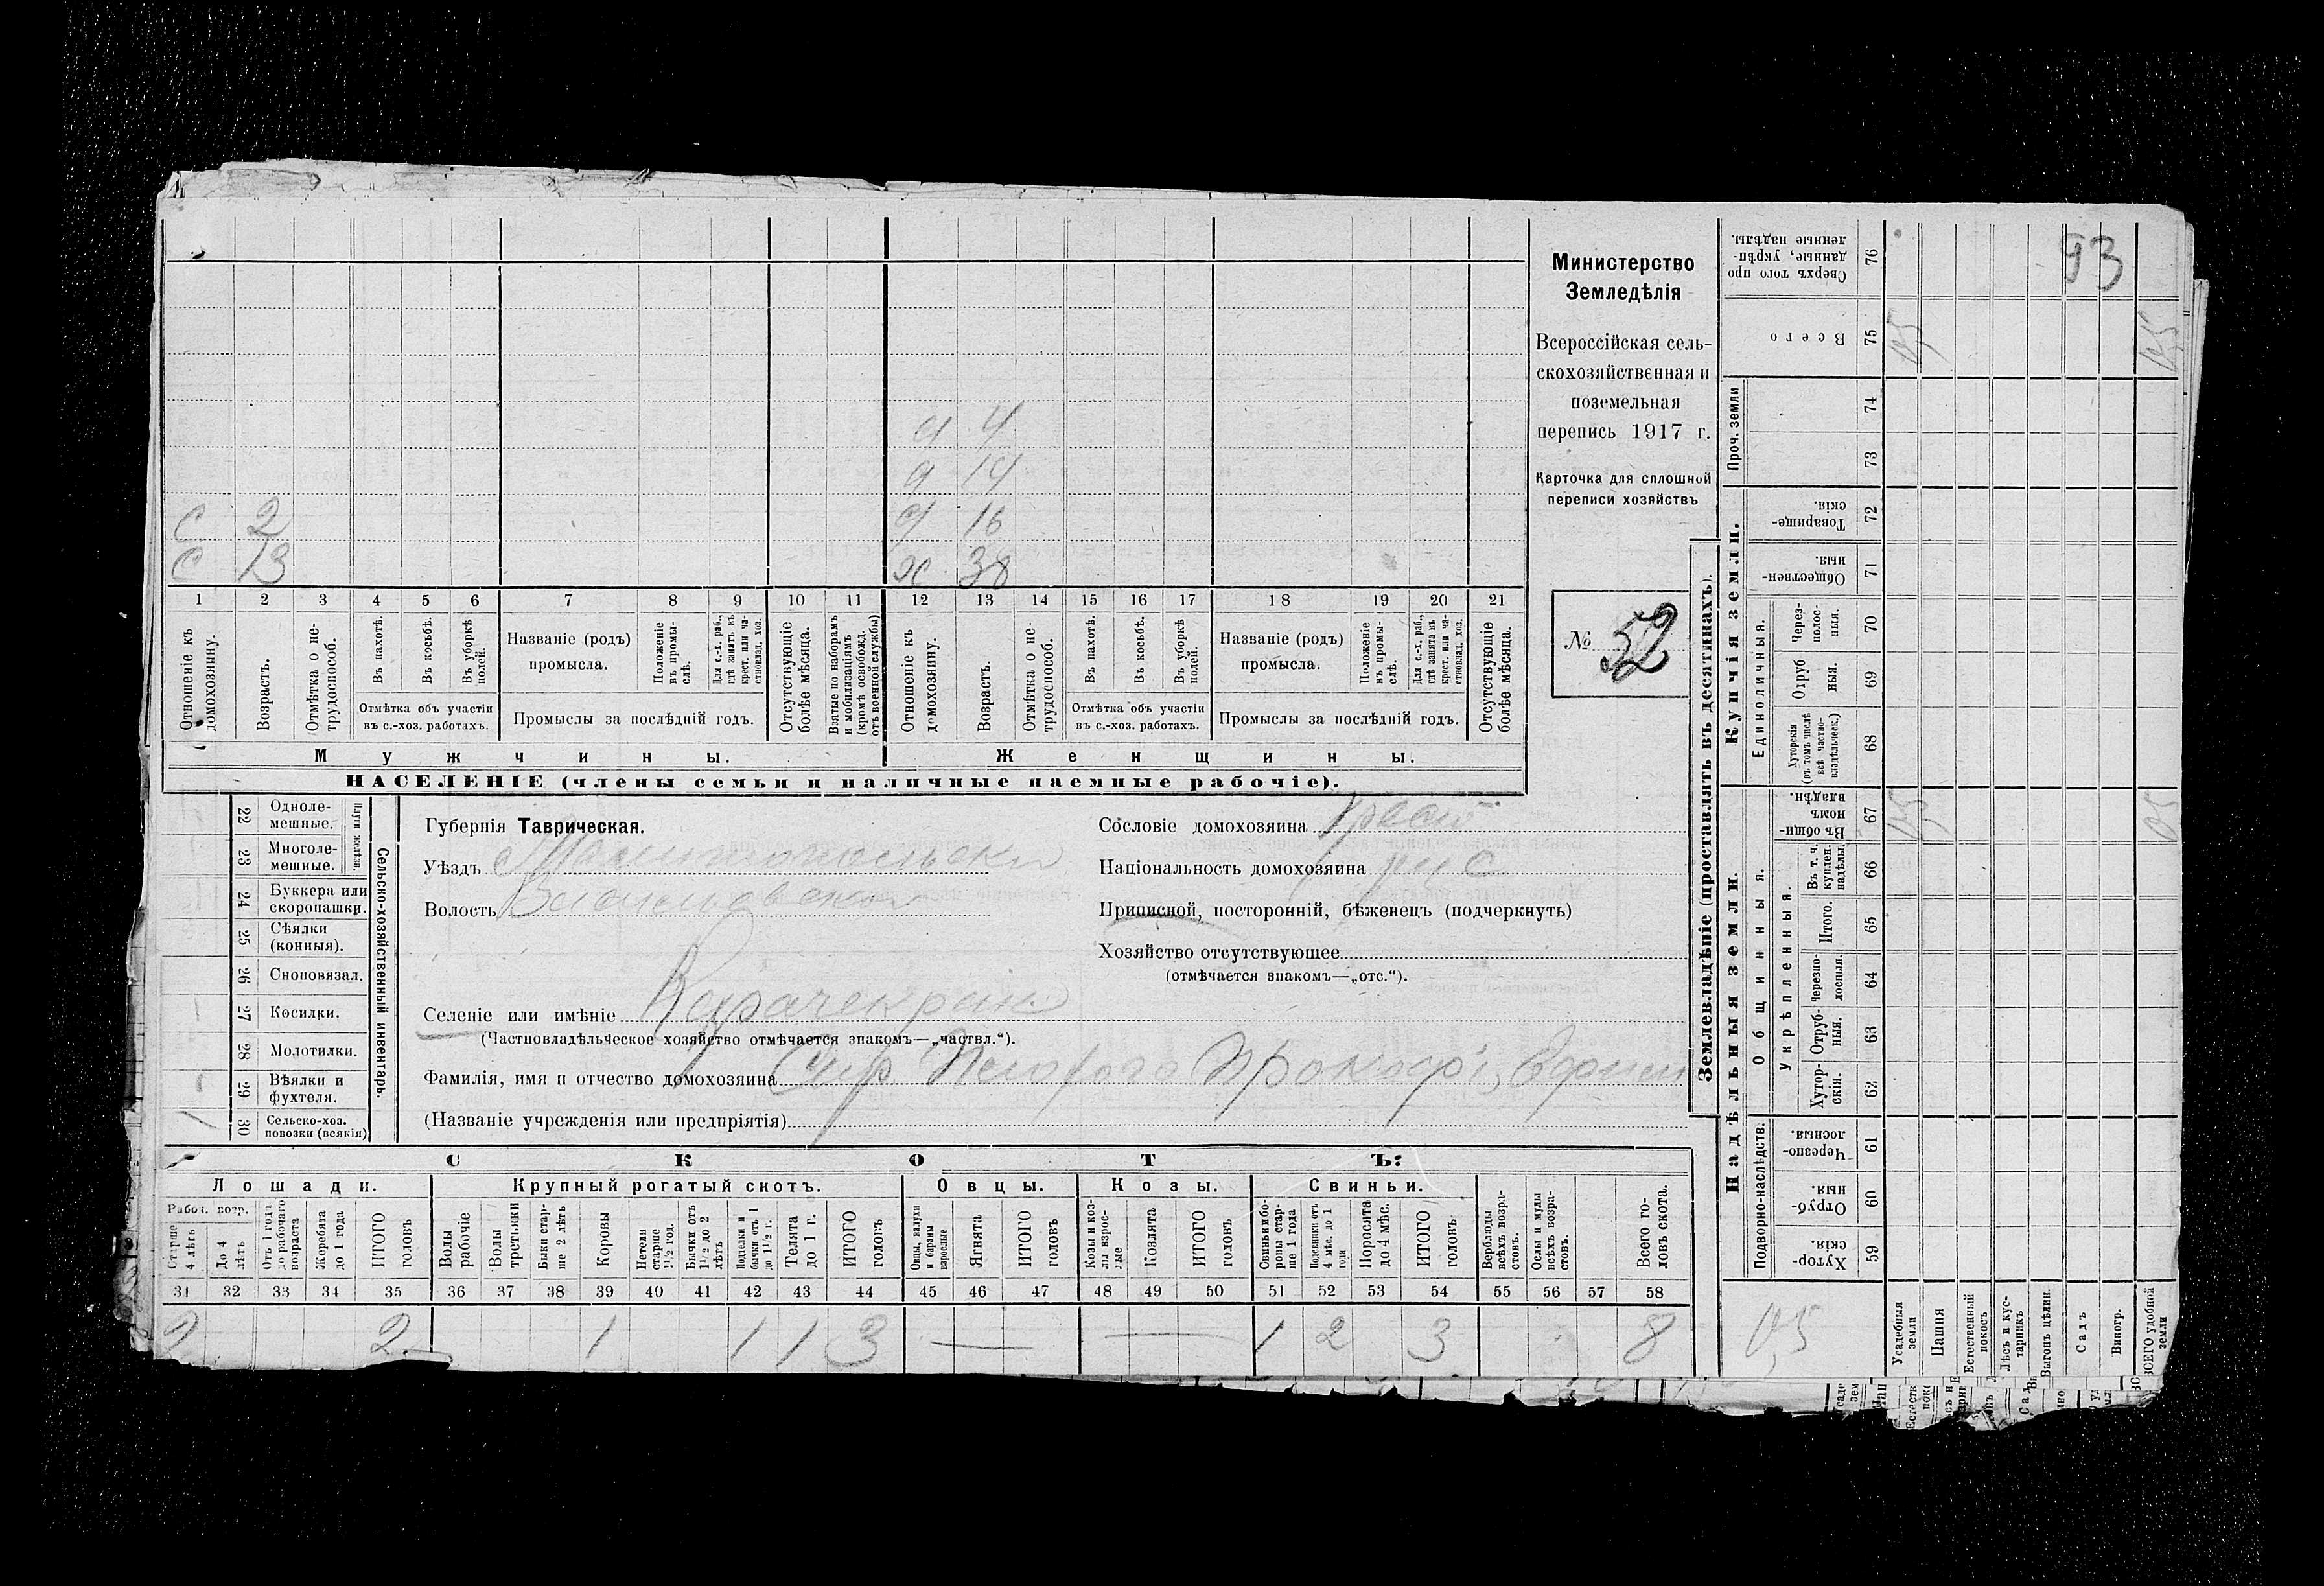 93
Министерство
Земледѣлія
Всероссійская сель-
скохозяйственная и
поземельная
перепись 1917 г.
Карточка для сплошной
переписи хозяйствъ
№ 52
д 4
д 14
с 2 д 16
с 13 ж 38
1 2 3 4 5 6 7 8 9 10 11 12 13 14 15 16 17 18 19 20 21
Отношеніе къ домохозяину.
Возрастъ.
Отмѣтка о не-трудоспособ.
Въ пахотѣ.
Въ косьбѣ.
Въ уборкѣ полей.
Отмѣтка объ участіи
въ с.-хоз. работахъ.
Названіе (родъ)
промысла.
Положеніе въ промы-слѣ.
Для с.-х. раб., гдѣ занятъ въ крест. или ча-стновлад. хоз.
Промыслы за послѣдній годъ.
Отсутствующіе болѣе мѣсяца.
Взятые по наборамъ и мобилизаціямъ (кромѣ освобожд. отъ военной службы)
Отношеніе къ домохозяину.
Возрастъ.
Отмѣтка о не-трудоспособ.
Въ пахотѣ.
Въ косьбѣ.
Въ уборкѣ полей.
Отмѣтка объ участіи
въ с.-хоз. работахъ.
Названіе (родъ)
промысла.
Положеніе въ промы-слѣ.
Для с.-х. раб., гдѣ занята въ крест. или ча-стновлад. хоз.
Промыслы за послѣдній годъ.
Отсутствующіе болѣе мѣсяца.
Мужчины. Женщины.
НАСЕЛЕНІЕ (члены семьи и наличные наемные рабочіе).
Сельско-хозяйственный инвентарь.
Плуги желѣзн.
22 Одноле-мешные.
23 Многоле-мешные.
24 Буккера или скоропашки.
25 Сѣялки (конныя).
26 Сноповязал.
27 Косилки.
28 Молотилки.
29 Вѣялки и фухтеля.
30 Сельско-хоз. повозки (всякія)
Губернія Таврическая.
Уѣздъ Мелитопольски
Волость
Селеніе или имѣніе Карачекрак
(Частновладѣльческое хозяйство отмѣчается знакомъ—„частвл.“).
Фамилія, имя и отчество домохозяина
(Названіе учрежденія или предпріятія)
Сословіе домохозяина крест
Національность домохозяина рус
Приписной, посторонній, бѣженецъ (подчеркнуть)
Хозяйство отсутствующее
(отмѣчается знакомъ—„отс.“).
СКОТЪ:
Лошади. Крупный рогатый скотъ. Овцы. Козы. Свиньи.
Рабоч. возр.
Старше 4 лѣтъ
До 4 лѣтъ
Отъ 1 года до рабочаго возраста
Жеребята до 1 года
ИТОГО головъ
Волы рабочіе
Волы третьяки
Быки стар-ше 2 лѣтъ
Коровы
Нетели старше 1½ год.
Бычки отъ 1½ до 2 лѣтъ
Нетелки и бычки отъ 1 до 1½ г.
Телята до 1 г.
ИТОГО головъ
Овцы, валухи и бараны взрослые
Ягнята
ИТОГО головъ
Козы и коз-лы взрос-лые
Козлята
ИТОГО головъ
Свиньи и бо-ровы стар-ше 1 года
Подсвинки отъ 4 мѣс. до 1 года
Поросята до 4 мѣс.
ИТОГО головъ
Верблюды всѣхъ возра-стовъ.
Ослы и мулы всѣхъ возра-стовъ.
Всего го-ловъ скота.
31 32 33 34 35 36 37 38 39 40 41 42 43 44 45 46 47 48 49 50 51 52 53 54 55 56 57 58
2 2 1 1 1 3 — — 1 2 3 8
Землевладѣніе (проставлять въ десятинахъ).
Надѣльныя земли.
Купчія земли.
Проч. земли
Подворно-наслѣдств.
Общинныя.
Укрѣпленныя.
Единоличныя.
Сверхъ того про данные, укрѣп-ленные надѣлы. 76
Всего 75
74
73
Товарище-скія. 72
Обществен-ныя. 71
Через-полос-ныя. 70
Отруб ныя. 69
Хуторскія (въ томъ числѣ всѣ частно-владѣльческ.) 68
Въ общи-номъ владѣн. 67
Въ т. ч. куплен. надѣлы. 66
Итого. 65
Черезпо-лосныя. 64
Отруб-ныя. 63
Хутор-скія. 62
Черезпо-лосныя. 61
Отруб-ныя. 60
Хутор-скія. 59
0,5 0,5
0,5 0,5
0,5
Усадебныя земли
Пашня
Естественный покосъ
Лѣсъ и кус-тарникъ
Выгонъ цѣлин.
Садъ
Виногр.
ВСЕГО удобной земли